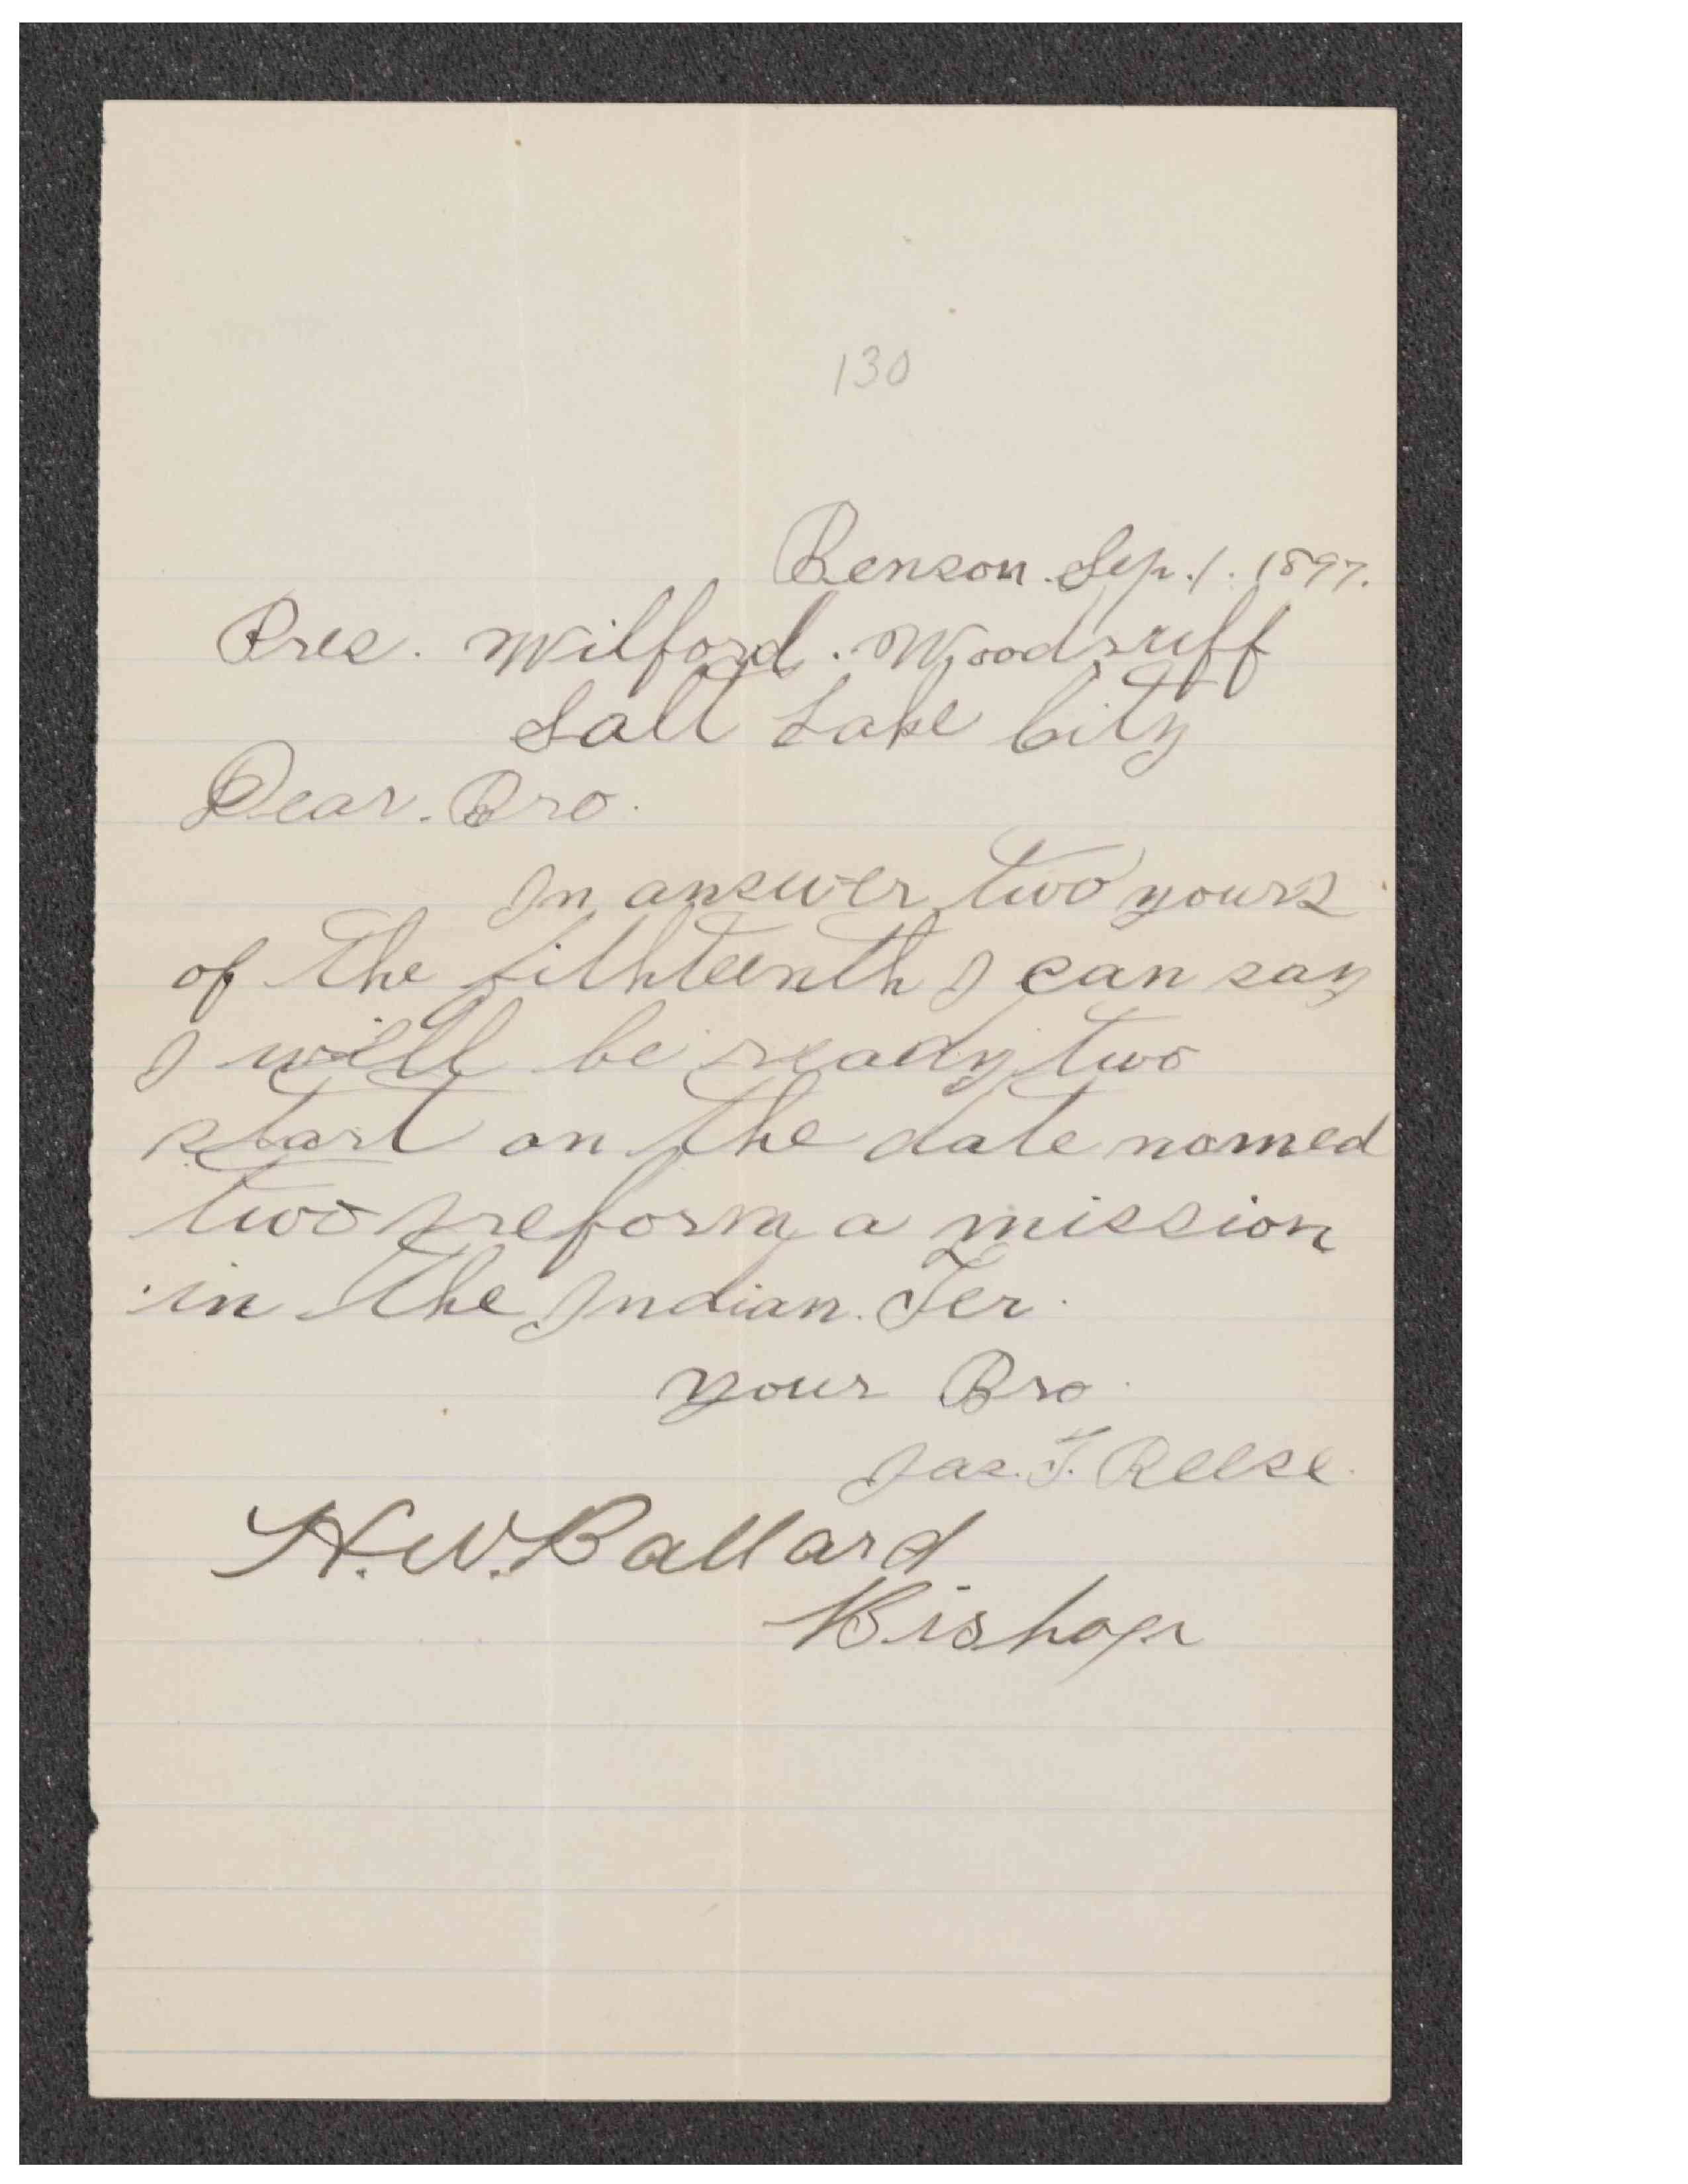 130
Benson. Sep. 1. 1897.
Pres. Wilford. Woodruff
Salt Lake City
Dear. Bro.
In answer two yours
of the fithteenth I can say
I will be ready two
start on the date named
two preform a mission
in the Indian. Ter.
your Bro.
Jas. T. Reese.
H. W. Ballard
Bishop